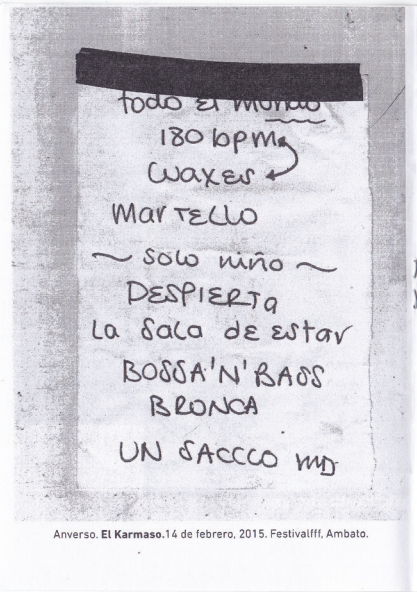 todo el mundo
180 bpm
Waxes
MARTELLO
~ solo niño ~
DESPIERTA
La Sala de estar
BOSSA'N'BASS
BRONCA
UN SACCCO MD
Anverso. El Karmaso.14 de febrero, 2015. Festivalfff, Ambato.